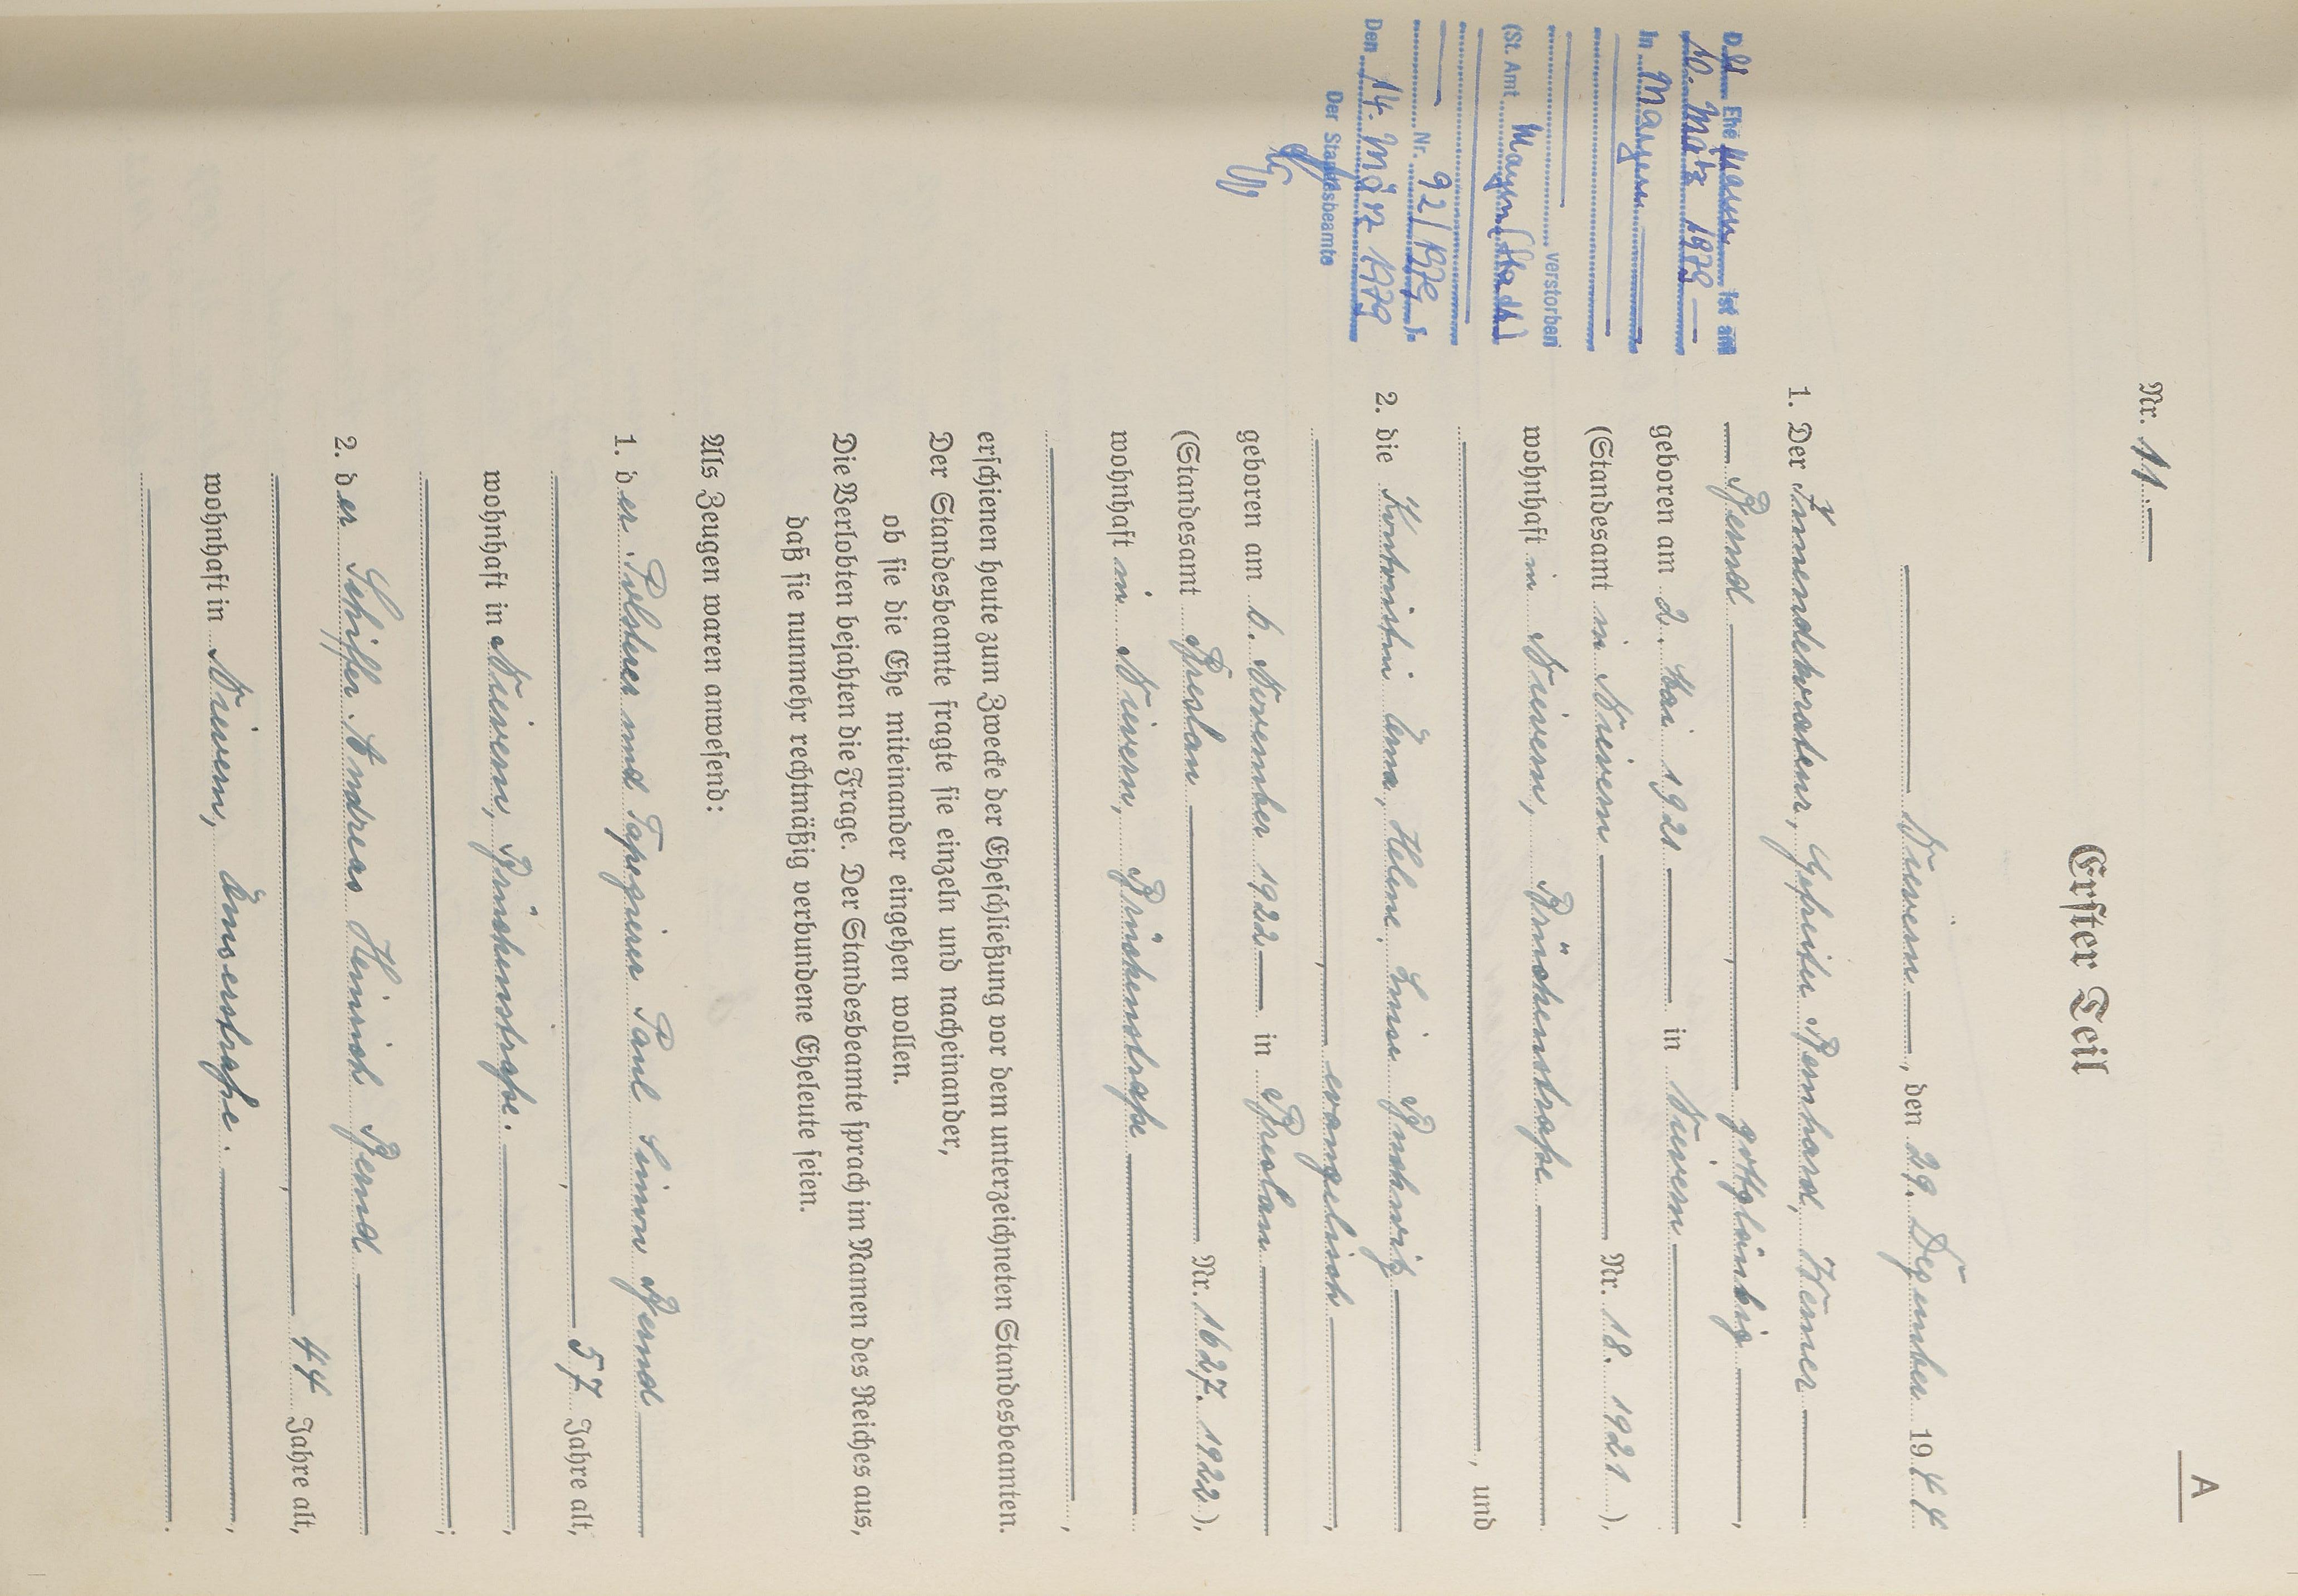 A
Nr. 11.
Erster Teil
Nievern, den 29. Dezember 1944
1. Der Innendekorateur, Gefreiter Bernhard, Werner
Bernd, gottgläubig,
geboren am 2. Mai 1921 in Nievern
(Standesamt in Nievern Nr. 18. 1921),
wohnhaft in Nievern, Brückenstraße
, und
2. die Kontoristin Erna, Helene, Luise
, evangelisch,
geboren am 6. November 1922 in Breslau
(Standesamt Breslau Nr. 1627. 1922),
wohnhaft in Nievern, Brückenstraße
,
erschienen heute zum Zwecke der Eheschließung vor dem unterzeichneten Standesbeamten.
Der Standesbeamte fragte sie einzeln und nacheinander,
ob sie die Ehe miteinander eingehen wollen.
Die Verlobten bejahten die Frage. Der Standesbeamte sprach im Namen des Reiches aus,
daß sie nunmehr rechtmäßig verbundene Eheleute seien.
Als Zeugen waren anwesend:
1. der Polsterer und Tapezierer Paul Simon Bernd
, 57 Jahre alt,
wohnhaft in Nievern, Brückenstraße.
;
2. der Schiffer Andreas Heinrich Bernd
, 44 Jahre alt,
wohnhaft in Nievern, Emserstraße.
.
D. Ehemann ist am
10. März 1979
in Mayen
verstorben
(St. Amt Mayen (Stadt)
Nr. 92/1979).
Den 14. März 1979
Der Standesbeamte